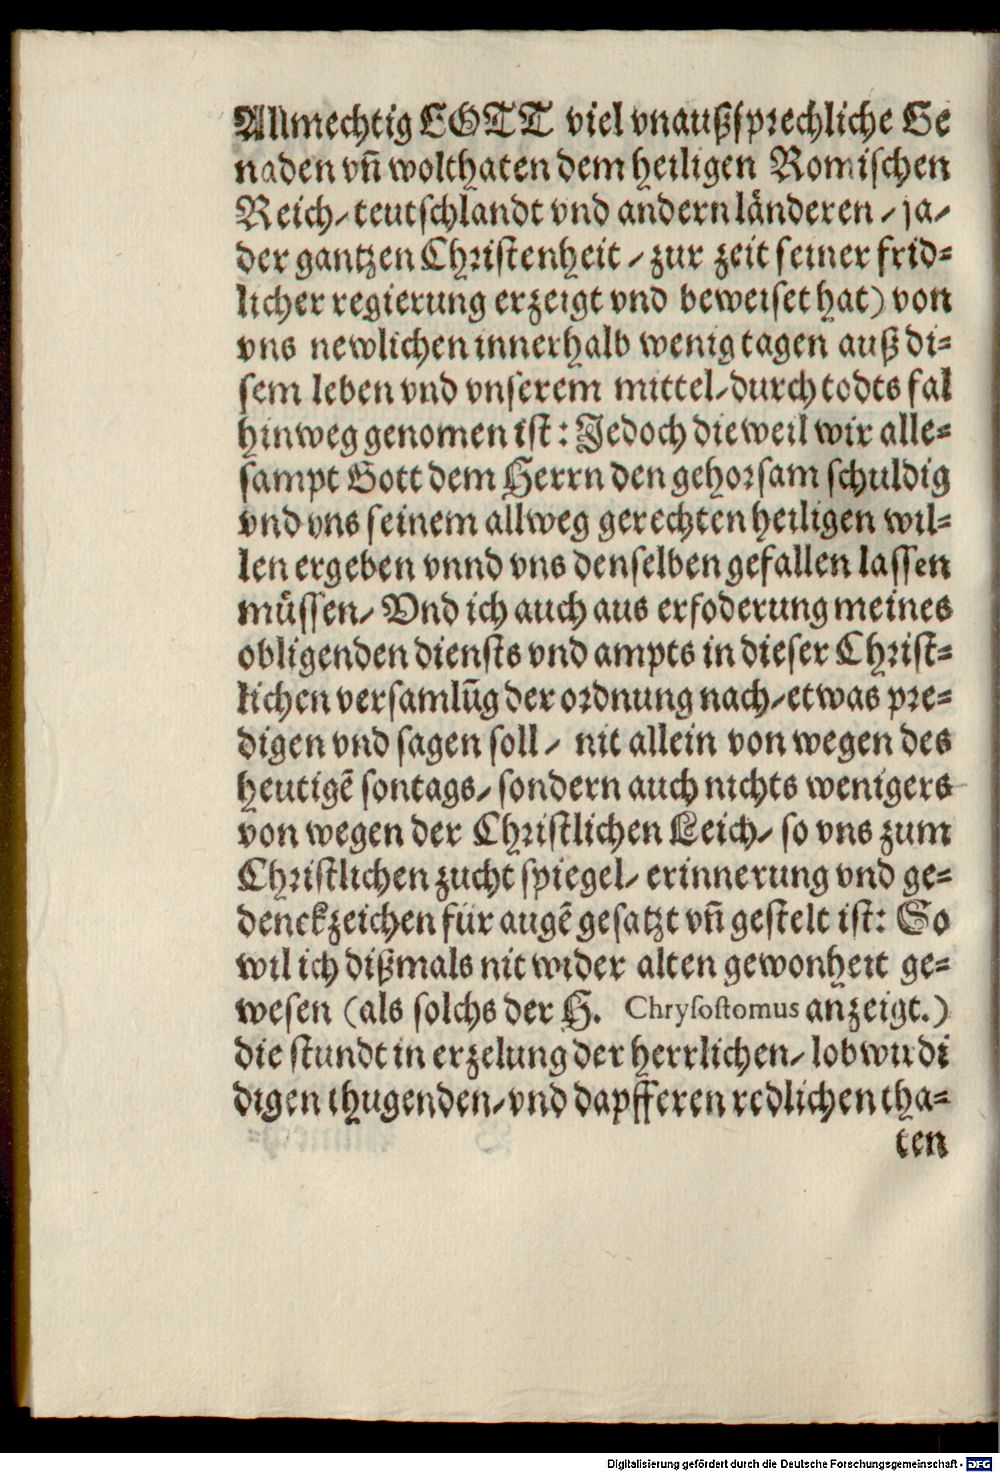 Allmechtig EGTT viel vnaußsprechliche Ge
naden vn̄ wolthaten dem heiligen Romischen
Reich/ teutschlandt vnd andern länderen / ja/
der gantzen Christenheit / zur zeit seiner frid-
licher regierung erzeigt vnd beweiset hat) von
vns newlichen innerhalb wenig tagen auß di-
sem leben vnd vnserem mittel/ durch todts fal
hinweg genomen ist: Jedoch dieweil wir alle-
sampt Gott dem Herrn den gehorsam schuldig
vnd vns seinem allweg gerechten heiligen wil-
len ergeben vnnd vns denselben gefallen lassen
müssen/ Vnd ich auch aus erfoderung meines
obligenden diensts vnd ampts in dieser Christ-
lichen versamlūg der ordnung nach/ etwas pre-
digen vnd sagen soll / nit allein von wegen des
heutigē sontags/ sondern auch nichts wenigers
von wegen der Christlichen Leich/ so vns zum
Christlichen zucht spiegel/ erinnerung vnd ge-
denckzeichen für augē gesatzt vn̄ gestelt ist: So
wil ich dißmals nit wider alten gewonheit ge-
wesen (als solchs der H. Chrysostomus anzeigt.)
die stundt in erzelung der herrlichen/ lobwirdi
digen thugenden/ vnd dapfferen redlichen tha-
ten
Digitalisierung gefördert durch die Deutsche Forschungsgemeinschaft - DFG